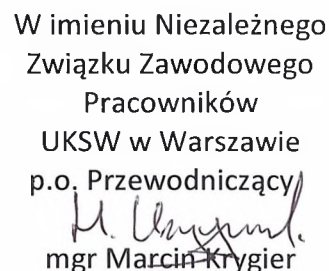 W imieniu Niezależnego
Związku Zawodowego
Pracowników
UKSW w Warszawie
p.o. Przewodniczący
mgr Marcin Krygier